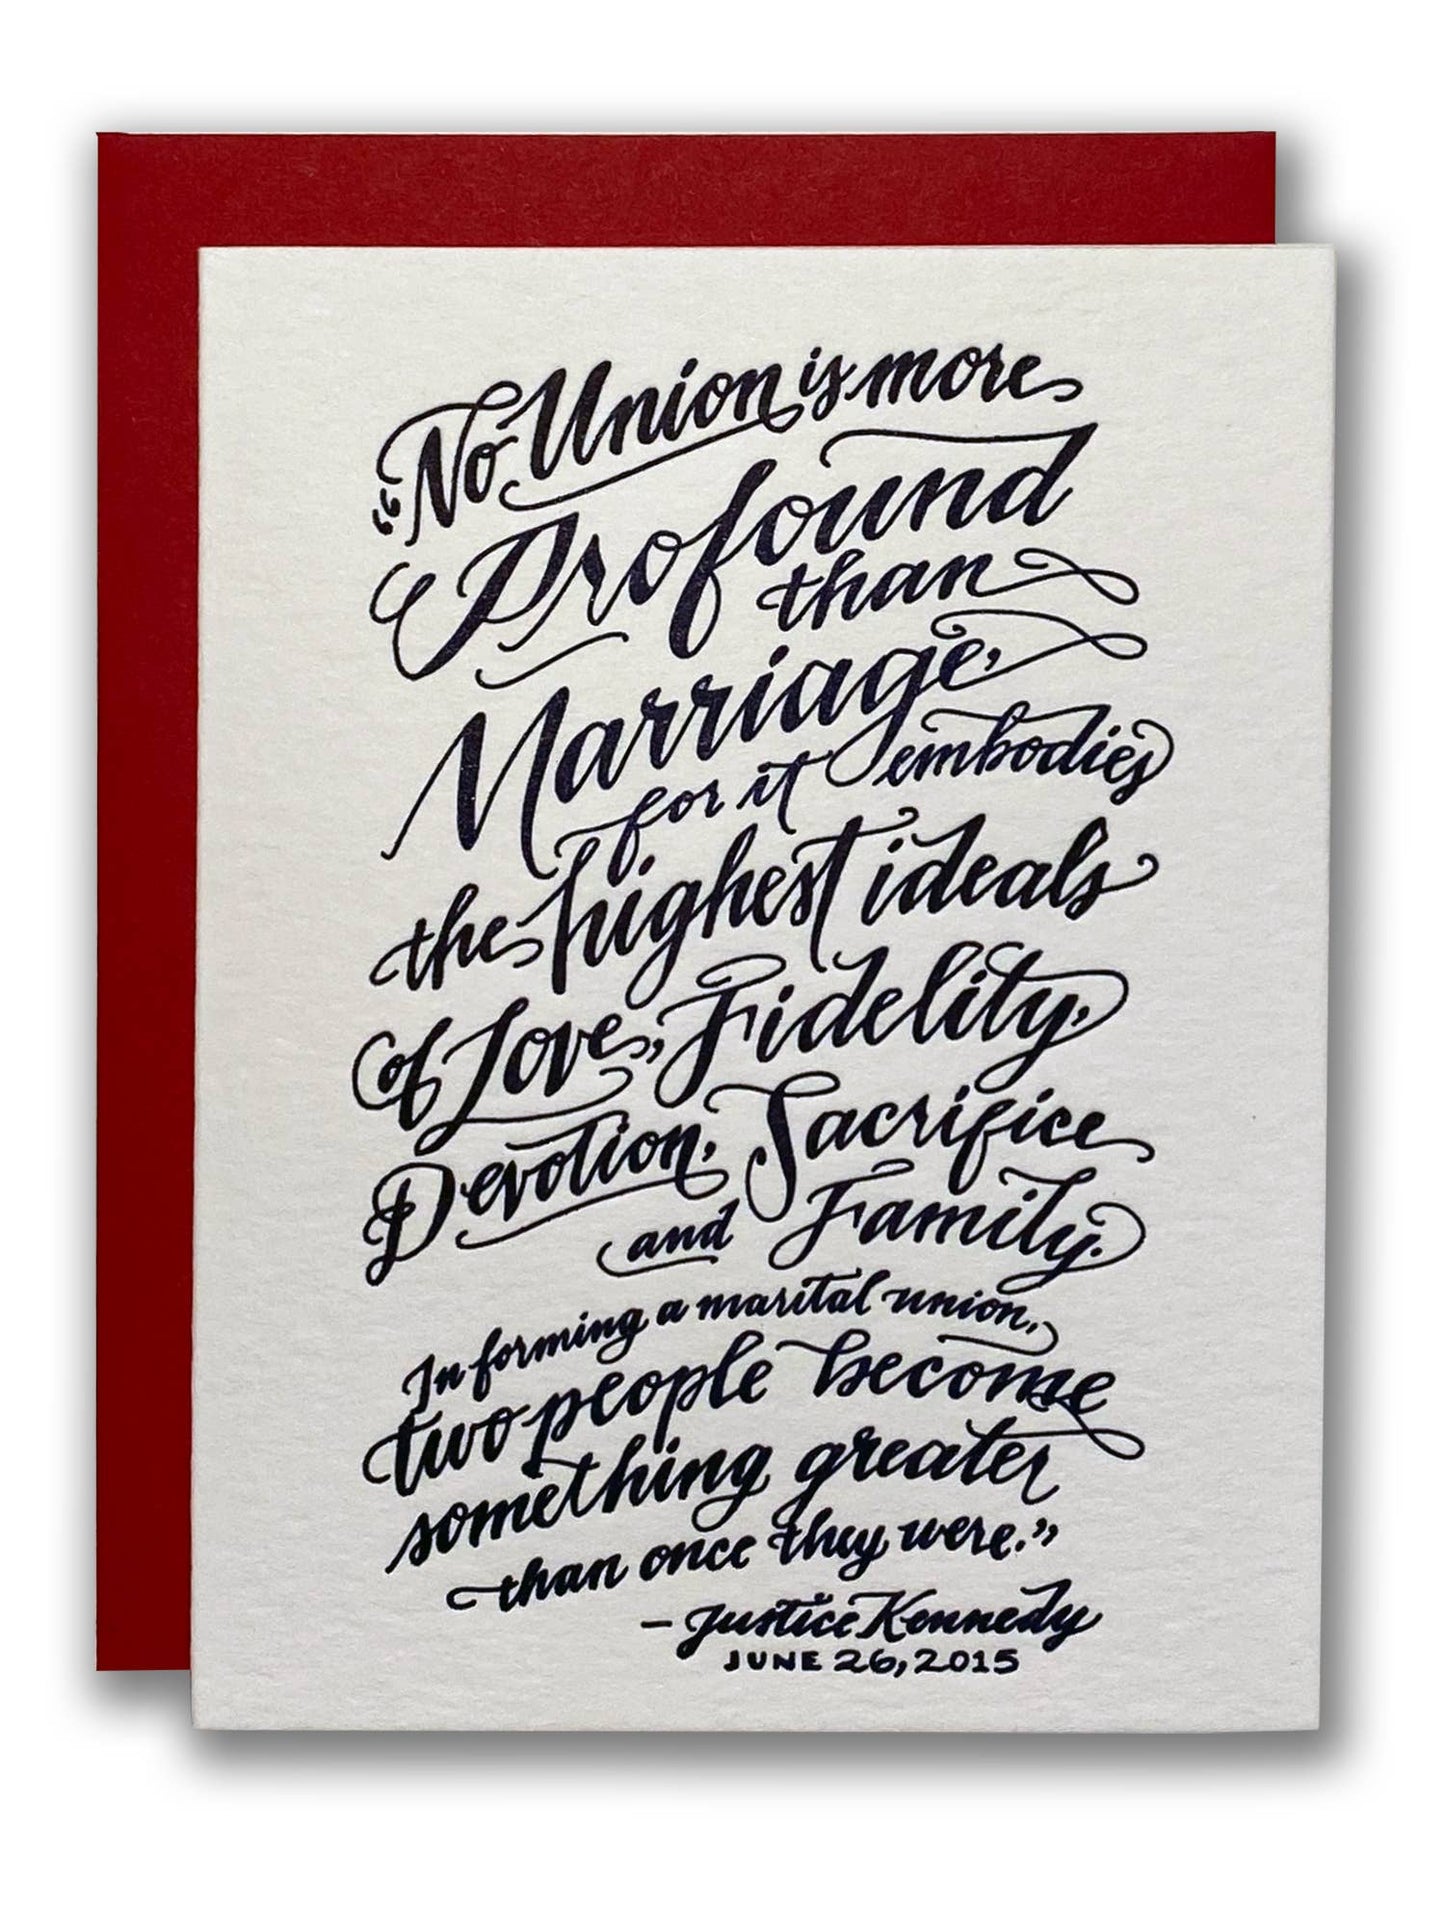 “No Union is more
Profound
than
Marriage,
for it embodies
the highest ideals
of Love, Fidelity,
Devotion, Sacrifice
and Family.
In forming a marital union,
two people become
something greater
than once they were.”
– Justice Kennedy
JUNE 26, 2015